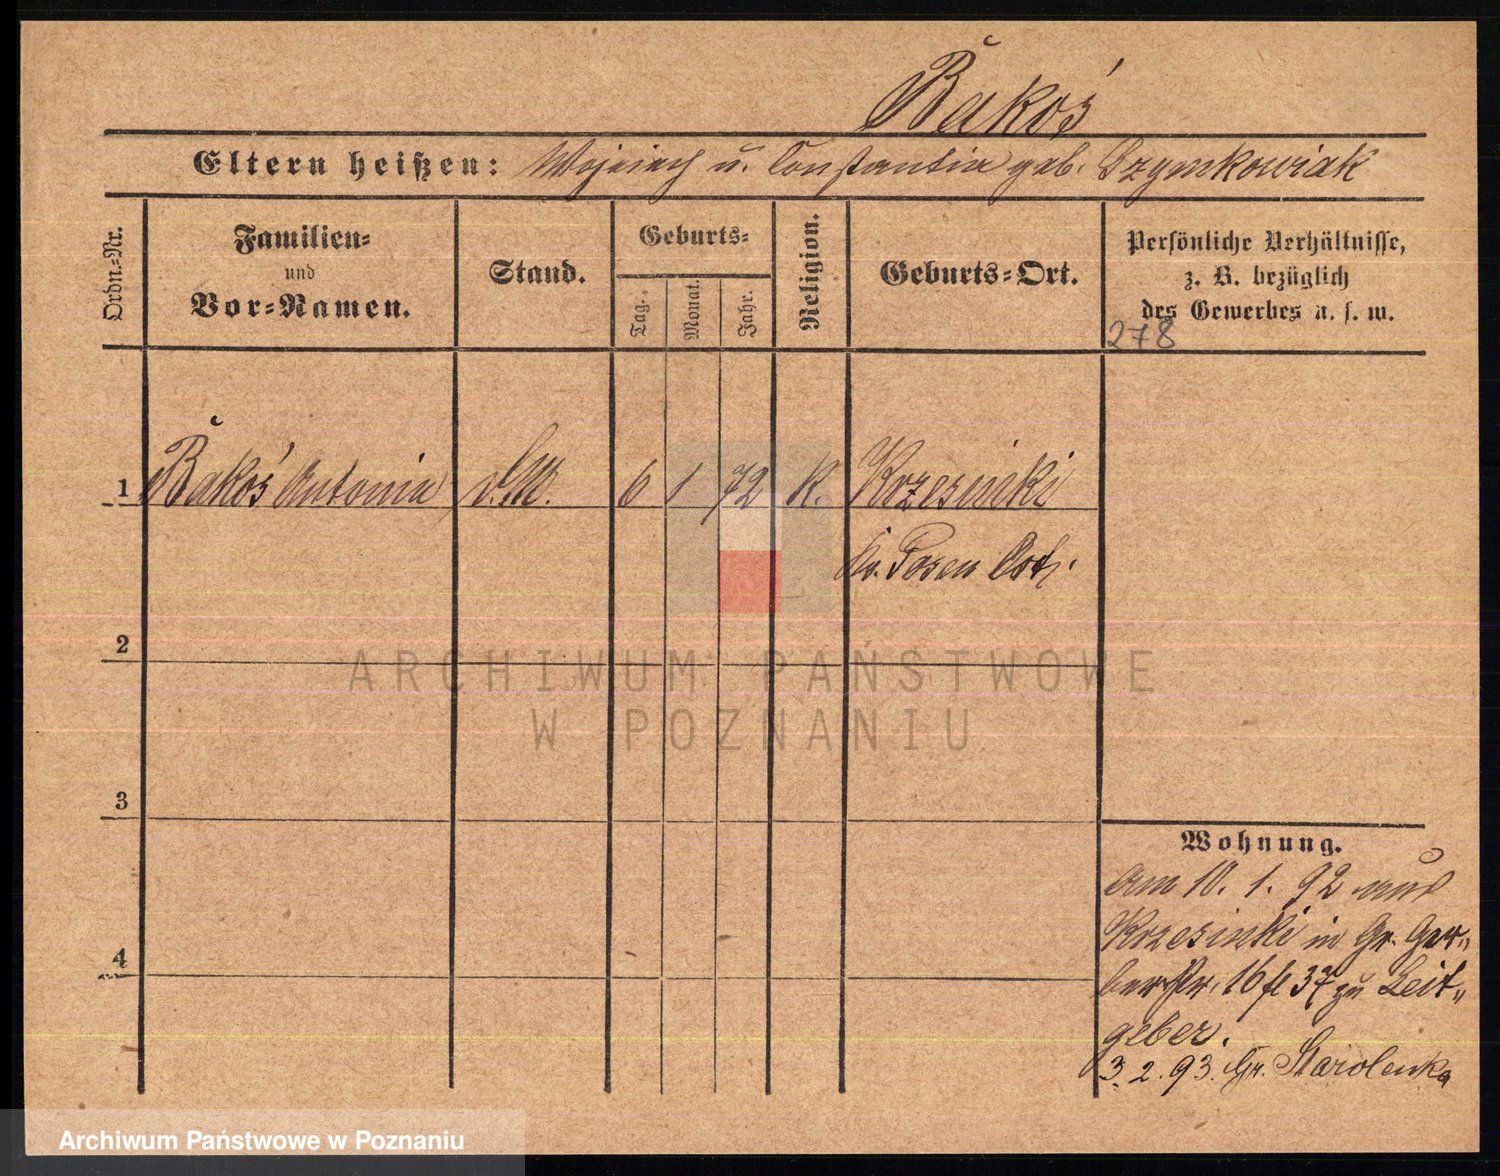 Bakoś
Eltern heißen: Wojciech u. Constantia geb. Szymkowiak
Ordn.-Nr.
Familien-
und
Vor-Namen.
Stand.
Geburts-
Tag.
Monat.
Jahr.
Religion.
Geburts-Ort.
Persönliche Verhältnisse,
z. B. bezüglich
des Gewerbes u. s. w.
278
1 Bakoś Antonia 6 1 72 K. Krzesinki
Kr. Posen Ost.
2
3
4
Wohnung.
am 10. 1. 92 aus
Krzesinki in Gr. Ger-
berstr. 16 37 zu Leit-
geber.
3. 2. 93. Gr. Starolenka
ARCHIWUM PAŃSTWOWE
W POZNANIU
Archiwum Państwowe w Poznaniu